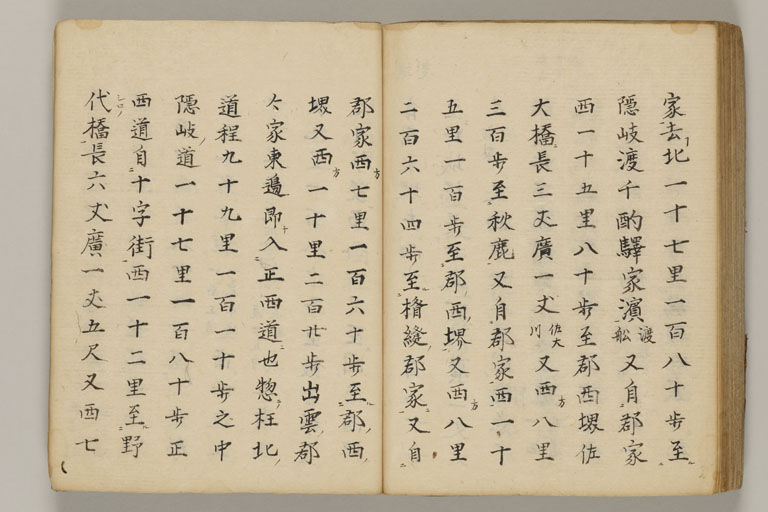 家去北一十七里一百八十歩至
隠岐渡千酌驛家濱渡船又自郡家
西一十五里八十歩至郡西堺佐
大橋長三丈廣一丈佐大川又西八里
三百歩至秋鹿又自郡家西一十
五里一百歩至郡西堺又西八里
二百六十四歩至楯縫郡家又自
郡家西七里一百六十歩至郡西
堺又西一十里二百廿歩出雲郡
家東邊即入正西道也惣枉北
道程九十九里一百一十歩之中
隠岐道一十七里一百八十歩正
西道自十字街西一十二里至野
代橋長六丈廣一丈五尺又西七